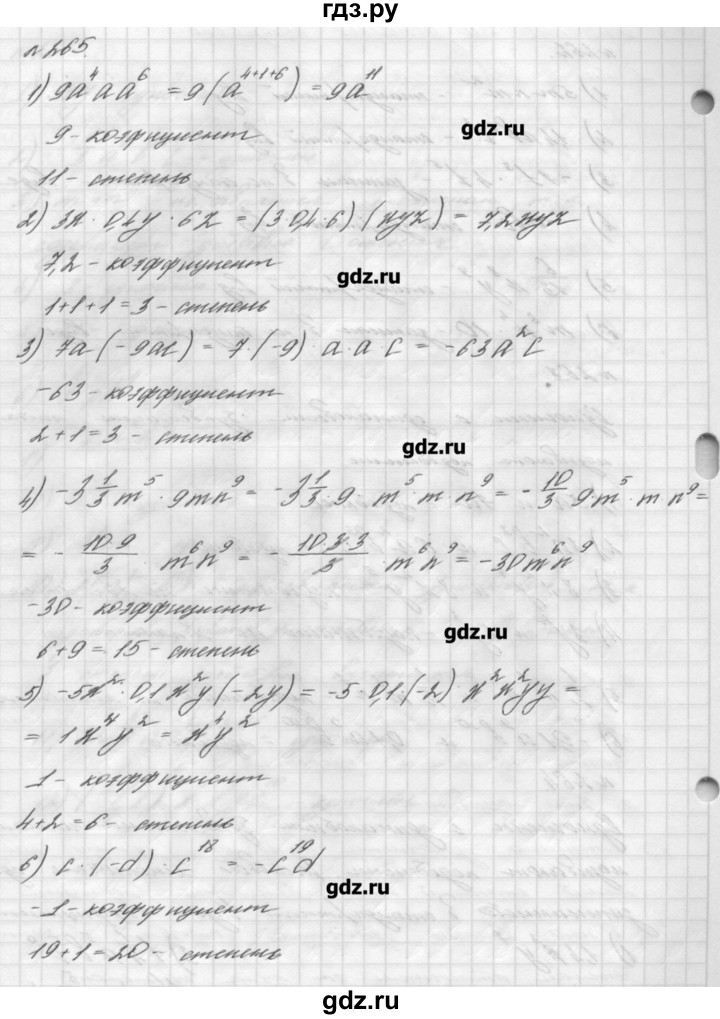 гдз.ру
№ 265.
1) 9a⁴ a a⁶ = 9 (a⁴⁺¹⁺⁶) = 9a¹¹
9 - коэфициент
gdz.ru
11 - степень
2) 3x · 0,4y · 6z = (3 0,4 · 6) (xyz) = 7,2xyz
7,2 - коэффициент
gdz.ru
1+1+1=3 - степень
3) 7a (-9ac) = 7 · (-9) · a · a c = -63a²c
-63 - коэффициент
2+1=3 - степень
gdz.ru
4) -3 1/3 m⁵ · 9mn⁹ = -3 1/3 · 9 · m⁵ · m · n⁹ = - 10/3 · 9 · m⁵ · m n⁹ =
= - 10·9/3 · m⁶n⁹ = - 10·3·3/3 m⁶n⁹ = -30m⁶n⁹
-30 - коэффициент
gdz.ru
6+9=15 - степень
5) -5x² · 0,1x²y (-2y) = -5 · 0,1 · (-2) · x²x²yy =
= 1x⁴y² = x⁴y²
1 - коэффициент
4+2=6 - степень
6) c · (-d) · c¹⁸ = -c¹⁹d
gdz.ru
-1 - коэффициент
19+1=20 - степень
gdz.ru